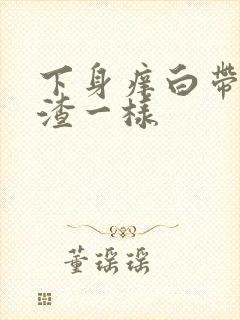 下身痒白带
渣一样
董瑶瑶